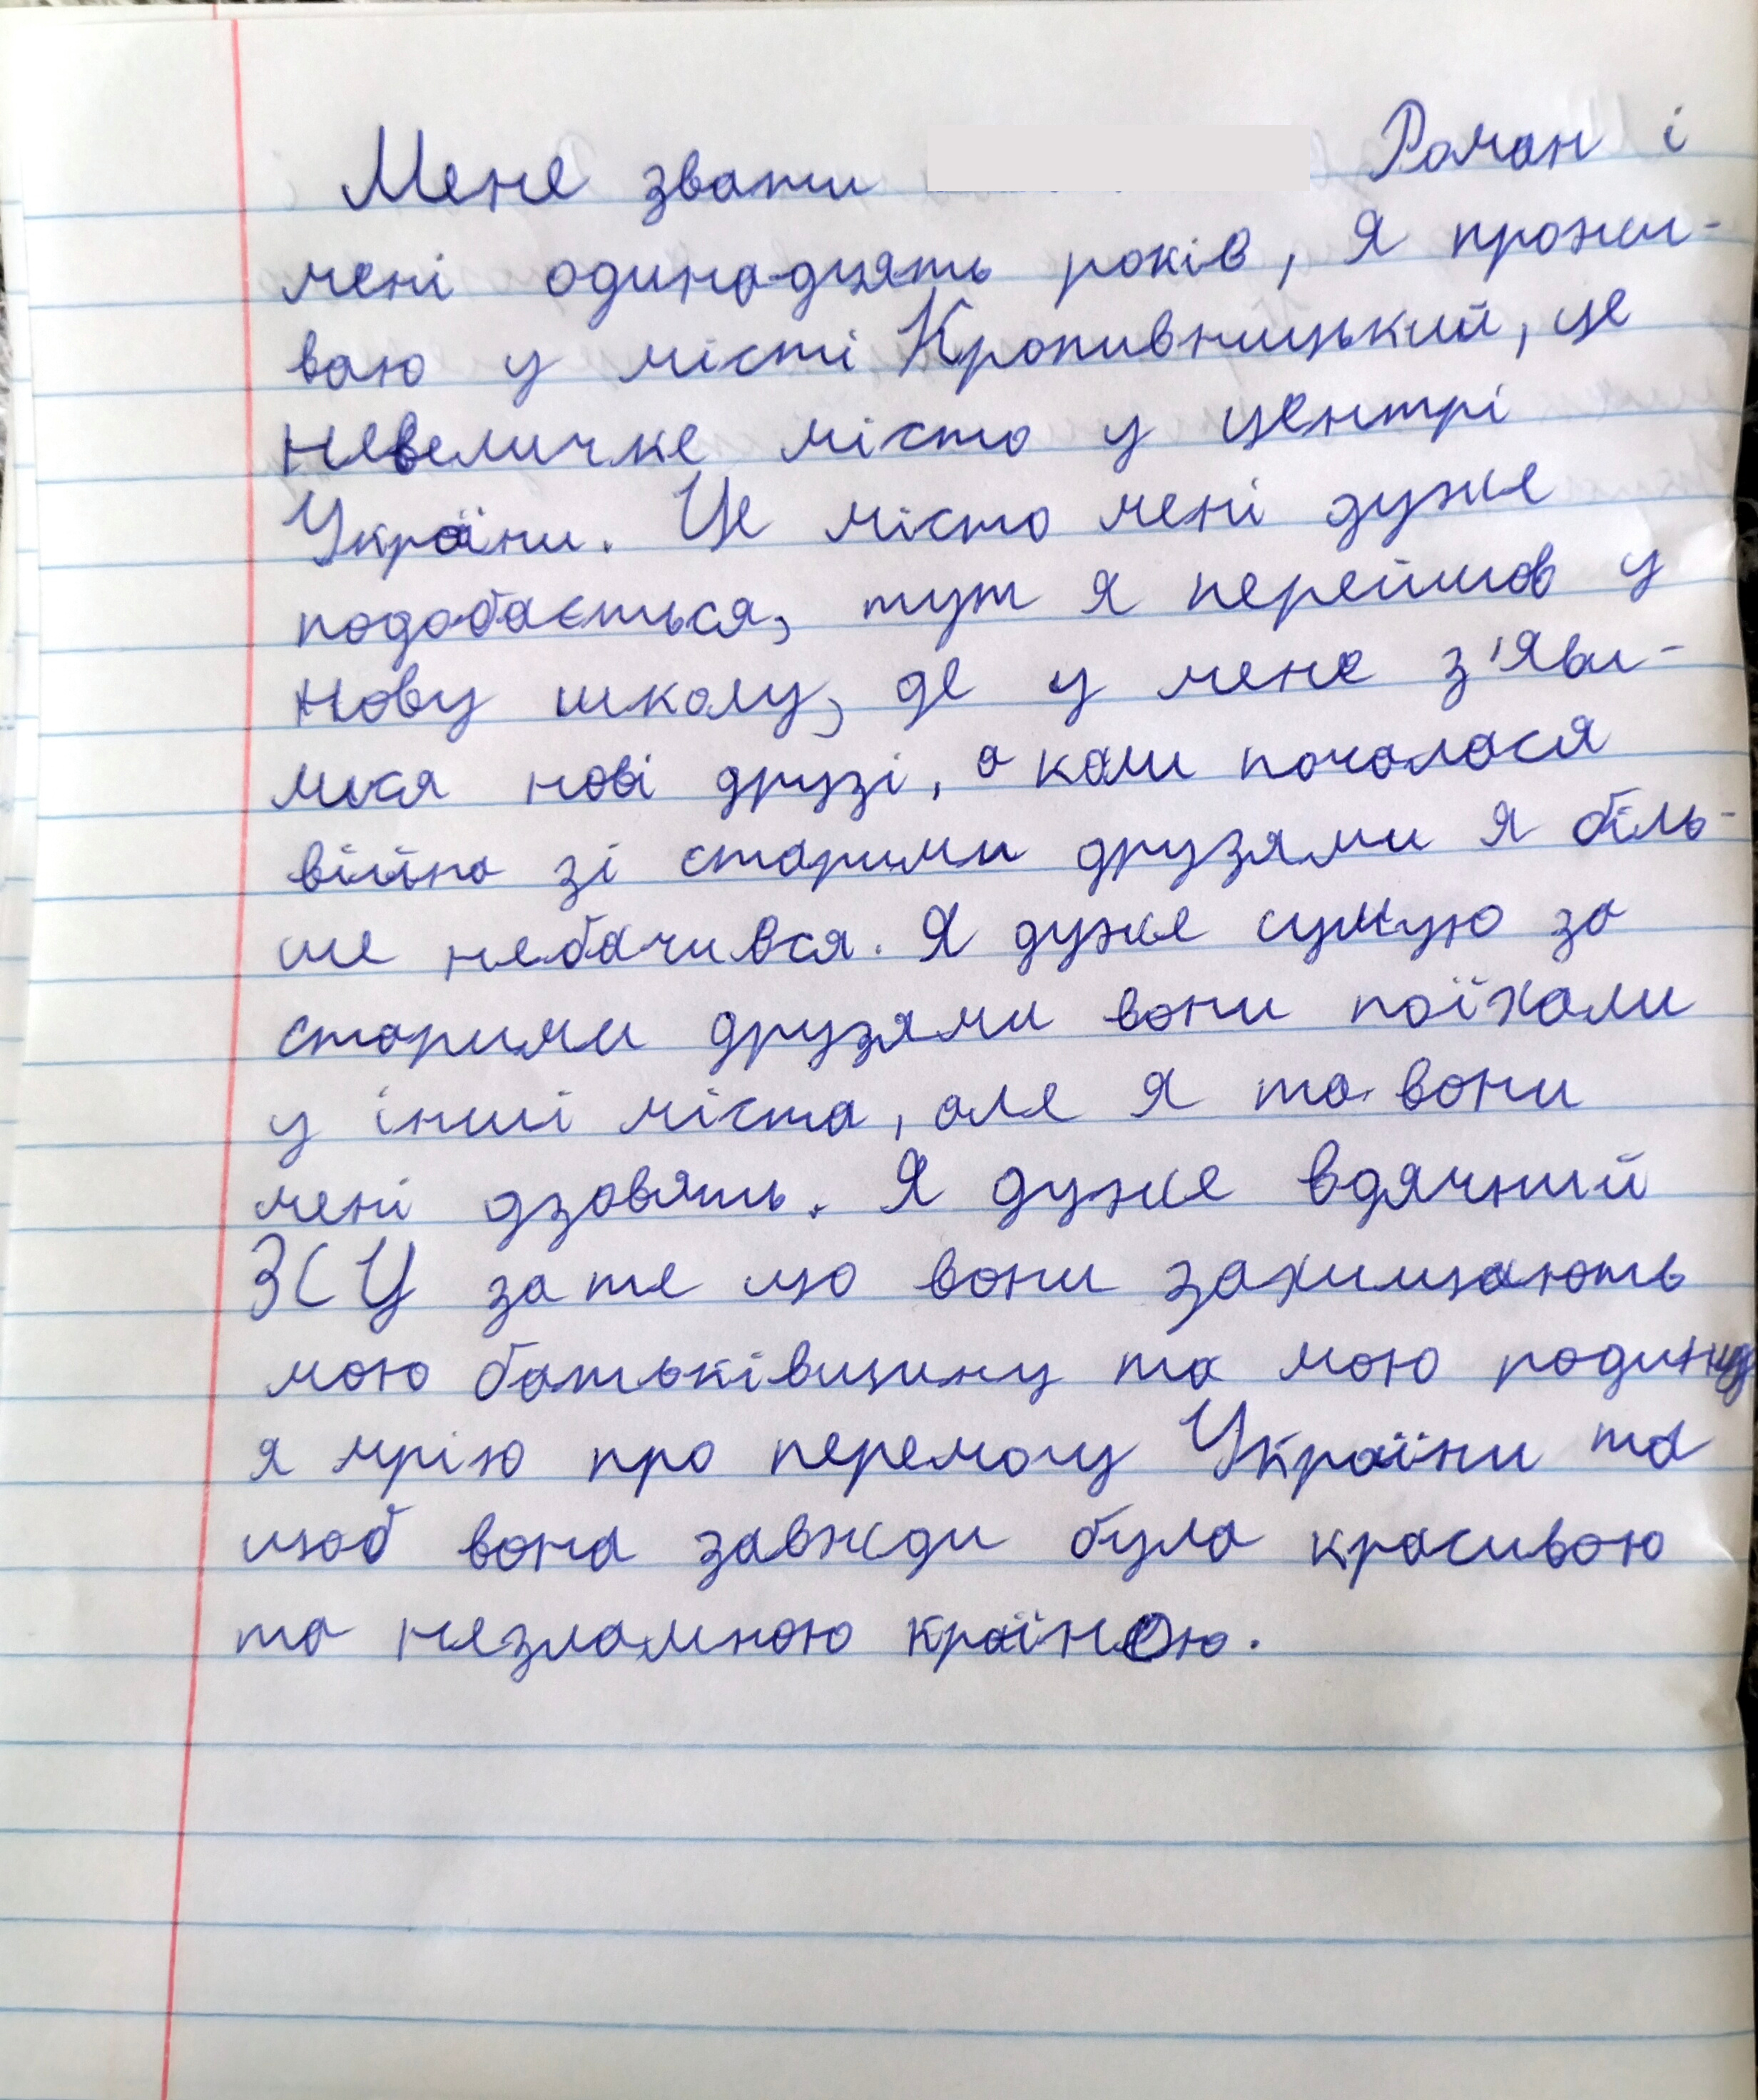 Мене звати Роман і
мені одинадцять років, я прожи-
ваю у місті Кропивницький, це
невеличке місто у центрі
України. Це місто мені дуже
подобається, тут я перейшов у
нову школу, де у мене з'яви-
лися нові друзі, а коли почалася
війна зі старими друзями я біль-
ше небачився. Я дуже сумую за
старими друзями вони поїхали
у інші міста, але я та вони
мені дзовять. Я дуже вдячний
ЗСУ за те що вони захищають
мою батьківщину та мою родину
я мрію про перемогу України та
щоб вона завжди була красивою
та незламною країною.